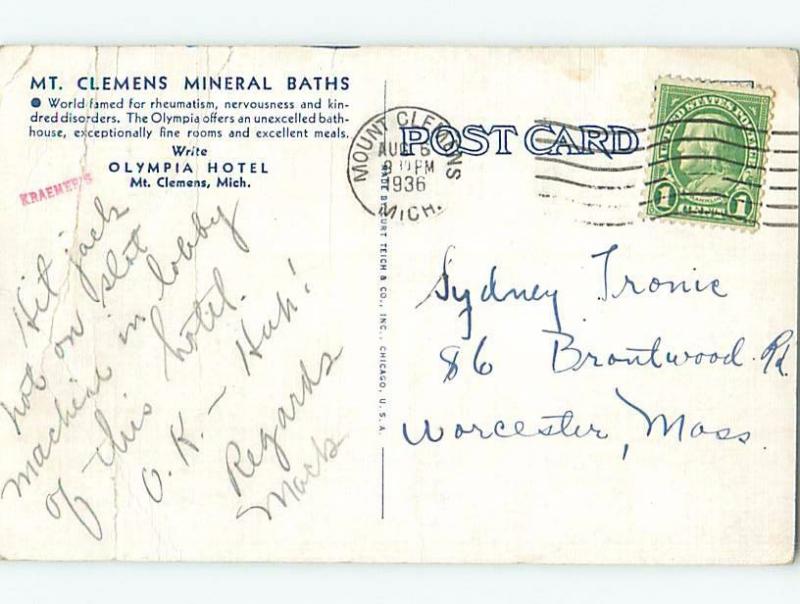 MT. CLEMENS MINERAL BATHS
● World famed for rheumatism, nervousness and kin-
dred disorders. The Olympia offers an unexcelled bath-
house, exceptionally fine rooms and excellent meals.
Write
OLYMPIA HOTEL
Mt. Clemens, Mich.
KRAEMER'S
Hit jack
pot on slot
machine in lobby
of this hotel.
O.K. - Huh!
Regards
Mack
MADE BY CURT TEICH & CO., INC., CHICAGO, U.S.A.
POST CARD
MOUNT CLEMENS
AUG 6
PM
1936
MICH.
UNITED STATES POSTAGE
FRANKLIN
1 1
Sydney Tronic
86 Brontwood Rd.
Worcester, Mass.